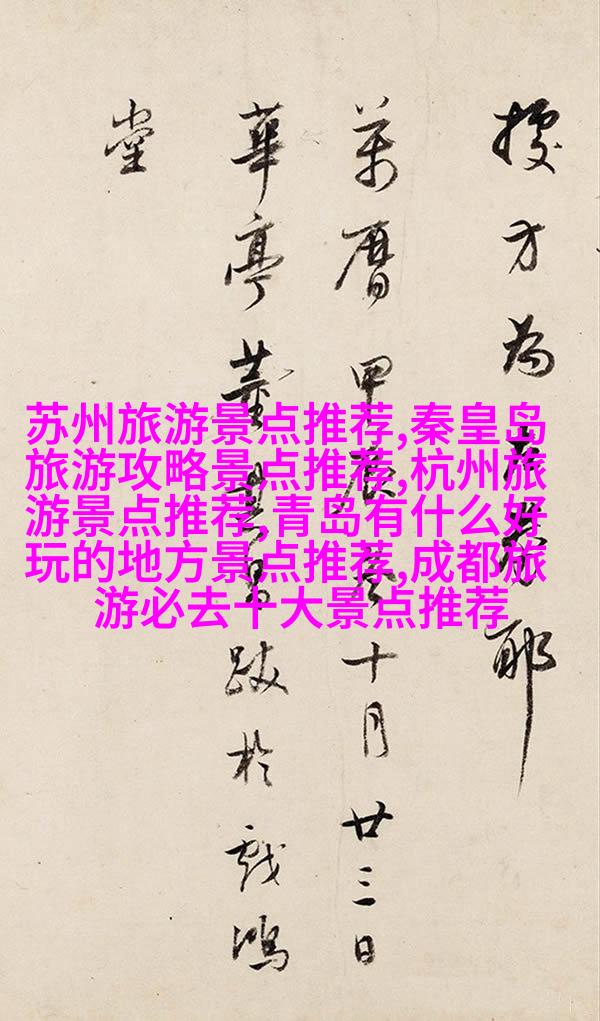 苏州旅游景点推荐,秦皇岛
旅游攻略景点推荐,杭州旅
游景点推荐,青岛有什么好
玩的地方景点推荐,成都旅
游必去十大景点推荐
方為耶
萬曆甲辰十月廿三日
華亭董其昌跋於戲鴻
堂